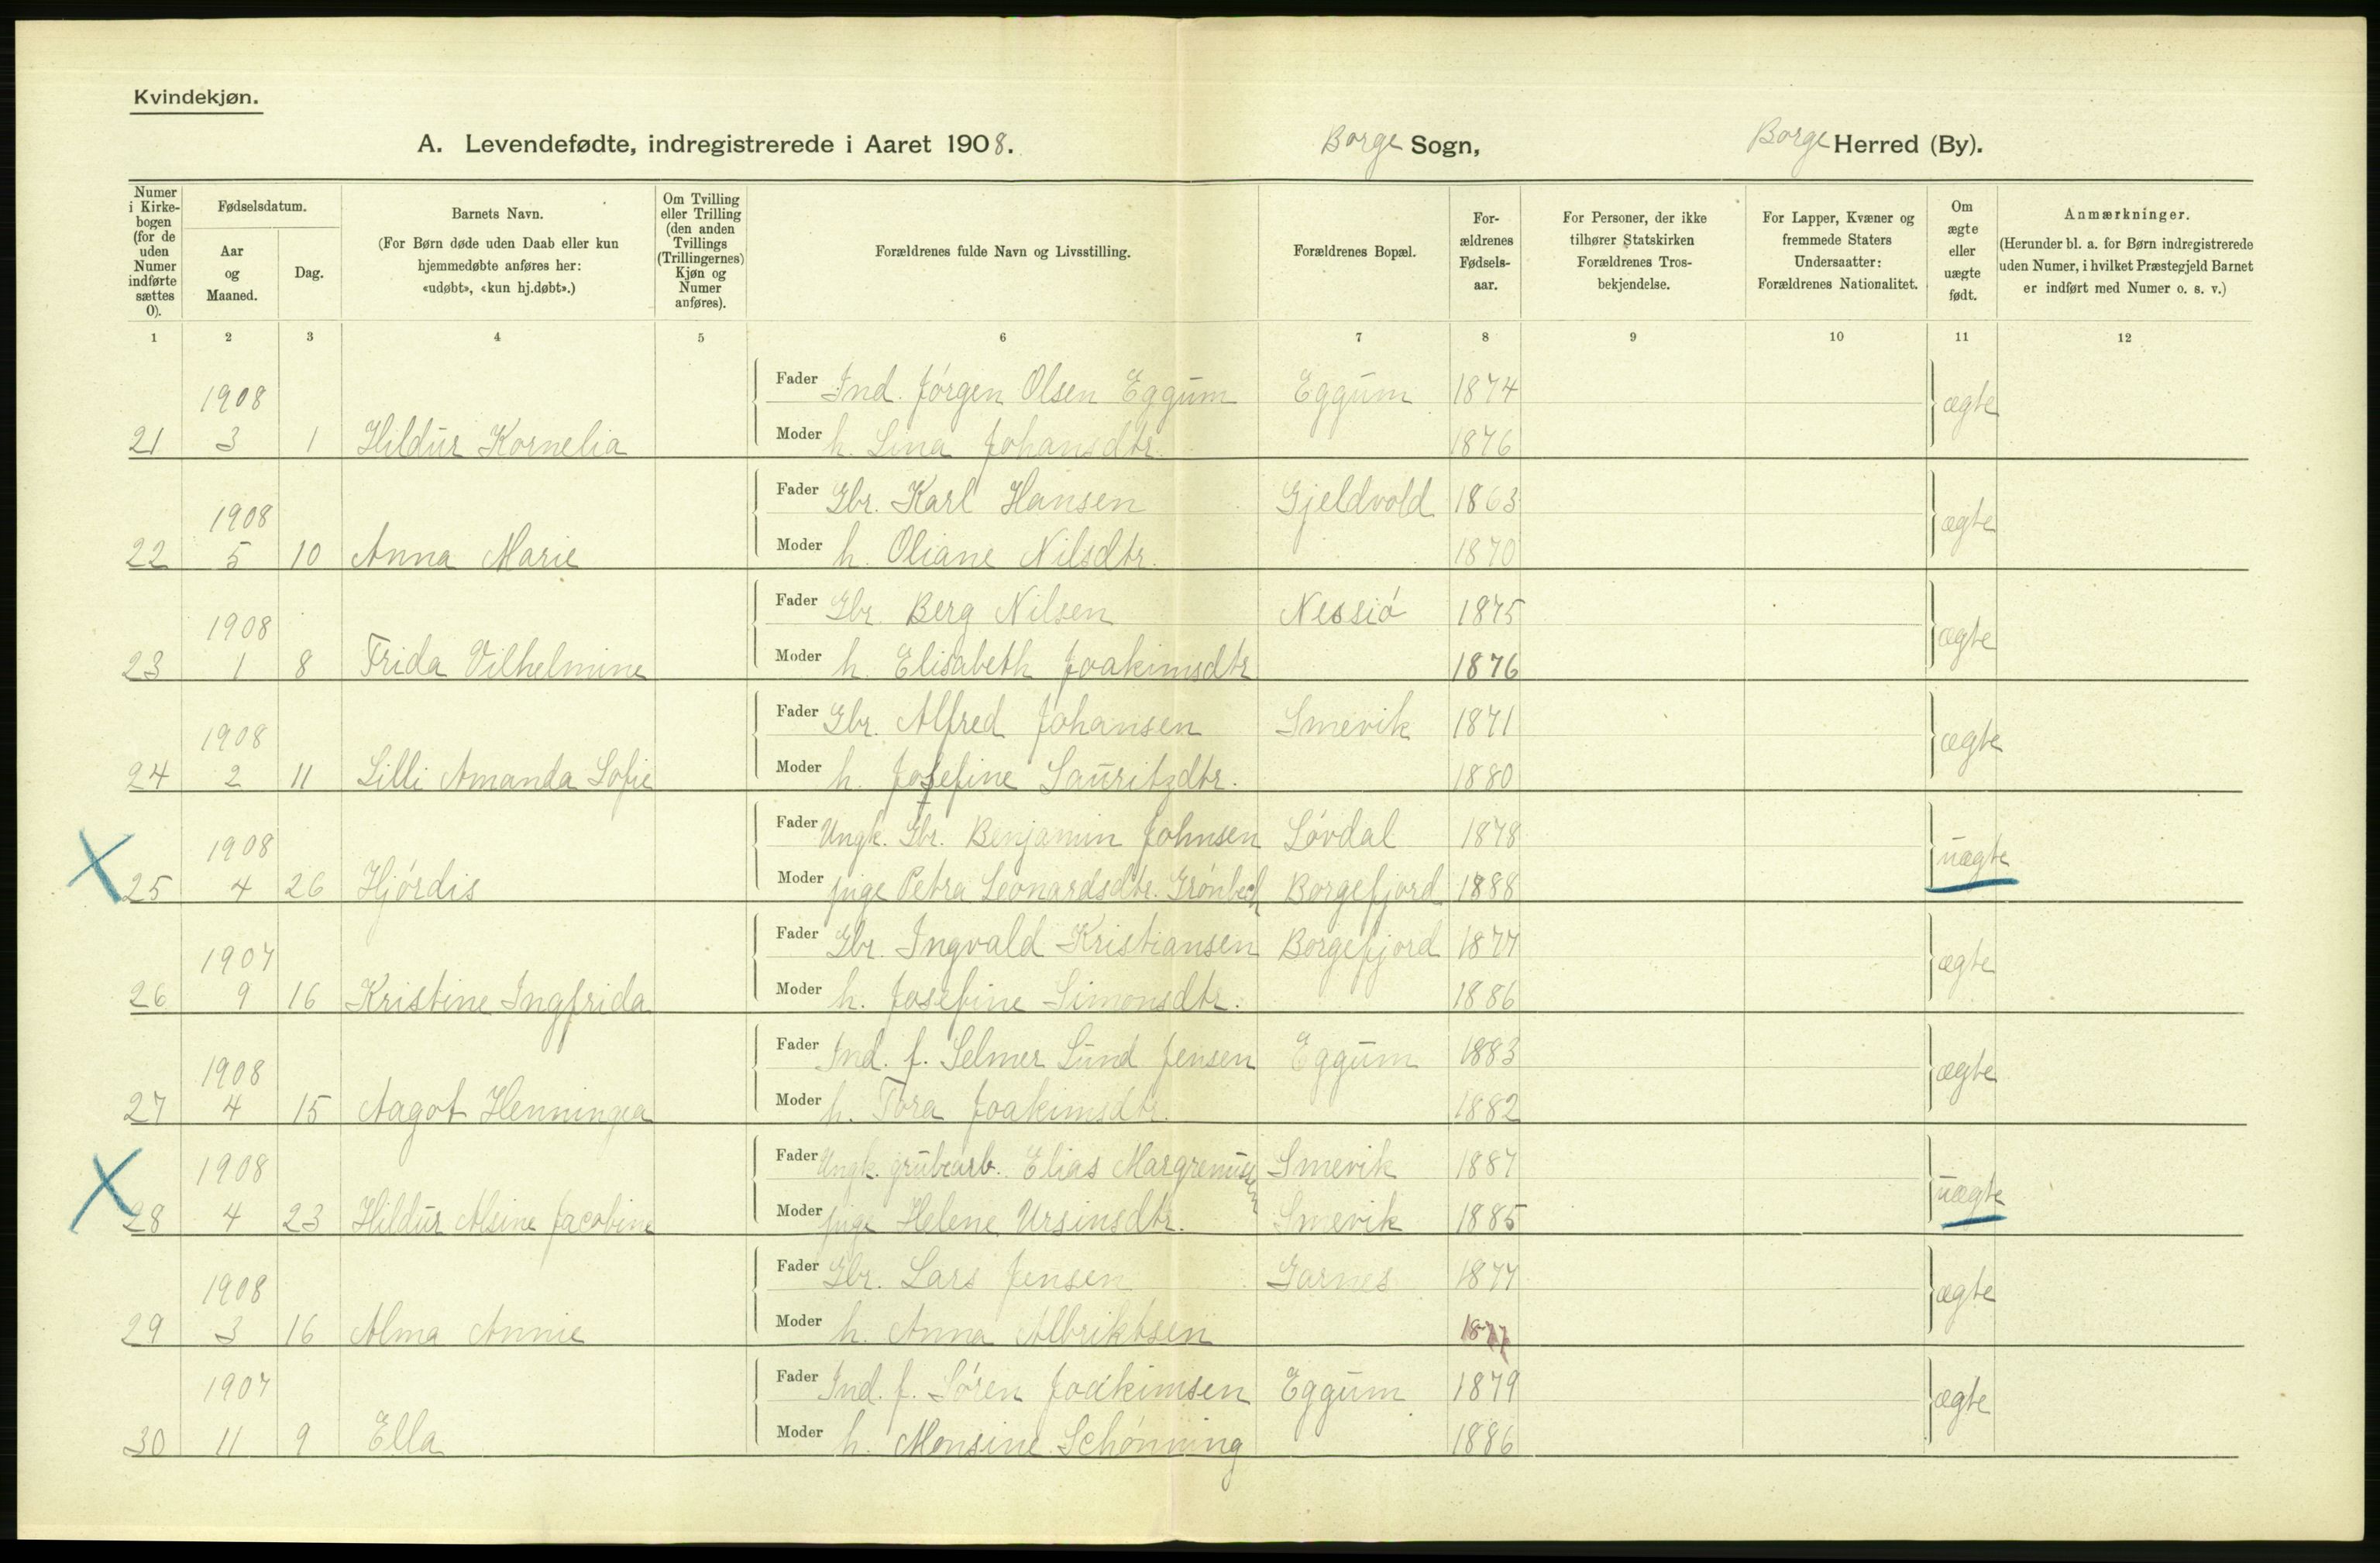 Kvindekjøn.
A. Levendefødte, indregistrerede i Aaret 1908. Borge Sogn, Borge Herred (By).
Numer i Kirke-bogen (for de uden Numer indførte sættes 0).
Fødselsdatum.
Aar og Maaned.
Dag.
Barnets Navn.
(For Børn døde uden Daab eller kun hjemmedøbte anføres her: «udøbt», «kun hj.døbt».)
Om Tvilling eller Trilling (den anden Tvillings (Trillingernes) Kjøn og Numer anføres).
Forældrenes fulde Navn og Livsstilling.
Forældrenes Bopæl.
For-ældrenes Fødsels-aar.
For Personer, der ikke tilhører Statskirken Forældrenes Tros-bekjendelse.
For Lapper, Kvæner og fremmede Staters Undersaatter: Forældrenes Nationalitet.
Om ægte eller uægte født.
Anmærkninger.
(Herunder bl. a. for Børn indregistrerede uden Numer, i hvilket Præstegjeld Barnet er indført med Numer o. s. v.)
1 2 3 4 5 6 7 8 9 10 11 12
1908 Fader Ind. Jórgen Olsen Eggum Eggum 1874 ægte
21 3 1 Hildur Kornelia Moder h. Lina Johansdtr. 1876
1908 Fader Gbr. Karl Hansen Gjeldvold 1863 ægte
22 5 10 Anna Marie Moder h. Oliane Nilsdtr. 1870
1908 Fader Gbr. Berg Nilsen Nessió 1875 ægte
23 1 8 Frida Vilhelmine Moder h. Elisabeth Joakimsdtr 1876
1908 Fader Gbr. Alfred Johansen Smevik 1871 ægte
24 2 11 Lilli Amanda Sofie Moder h. Josefine Lauritzdtr. 1880
1908 Fader Ungk. Gbr. Benjamin Johnsen Lóvdal 1878 uægte
X 25 4 26 Hjórdis Moder pige Petra Leonardsdtr. Grónbech Borgefjord 1888
1907 Fader Gbr. Ingvald Kristiansen Borgefjord 1877 ægte
26 9 16 Kristine Ingfrida Moder h. Josefine Simonsdtr. 1886
1908 Fader Ind. f. Selmer Lund Jensen Eggum 1883 ægte
27 4 15 Aagot Henningea Moder h. Tora Joakimsdtr. 1882
1908 Fader Ungk. grubearb. Elias Margrenussen Smevik 1887 uægte
X 28 4 23 Hildur Alsine Jacobine Moder pige Helene Ursinsdtr. Smevik 1885
1908 Fader Gbr. Lars Jensen Garnes 1877 ægte
29 3 16 Alma Annie Moder h. Anna Albriktsen 1877
1907 Fader Ind. f. Sóren Joakimsen Eggum 1879 ægte
30 11 9 Ella Moder h. Monsine Schónning 1886